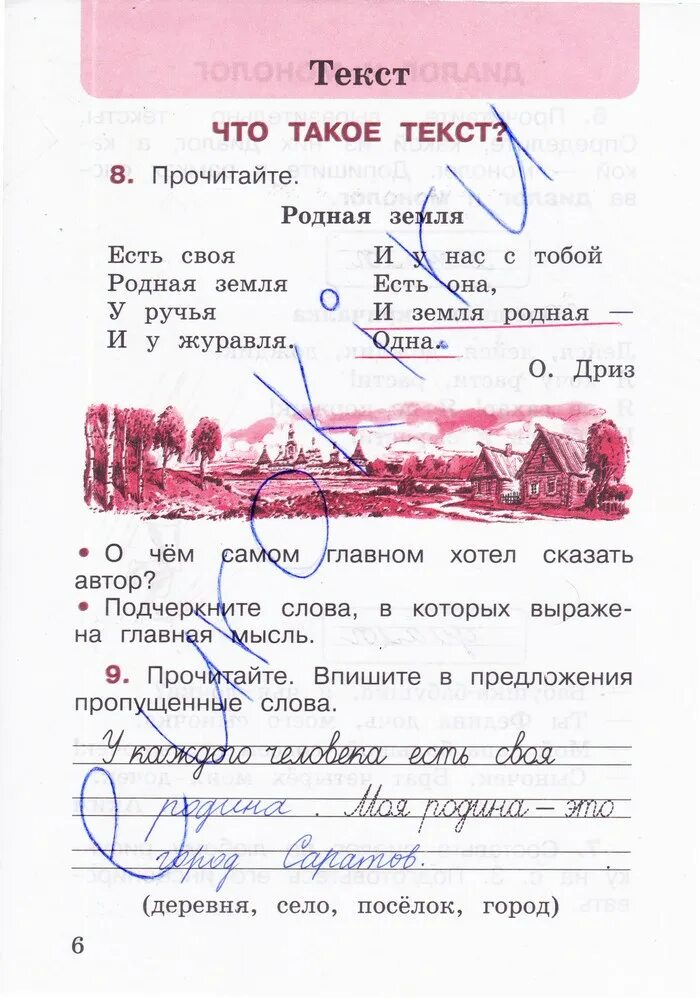 Текст
ЧТО ТАКОЕ ТЕКСТ?
8. Прочитайте.
Родная земля
Есть своя
Родная земля
У ручья
И у журавля.
И у нас с тобой
Есть она,
И земля родная —
Одна.
О. Дриз
• О чём самом главном хотел сказать
автор?
• Подчеркните слова, в которых выраже-
на главная мысль.
9. Прочитайте. Впишите в предложения
пропущенные слова.
У каждого человека есть своя
родина . Моя родина — это
город Саратов.
(деревня, село, посёлок, город)
6